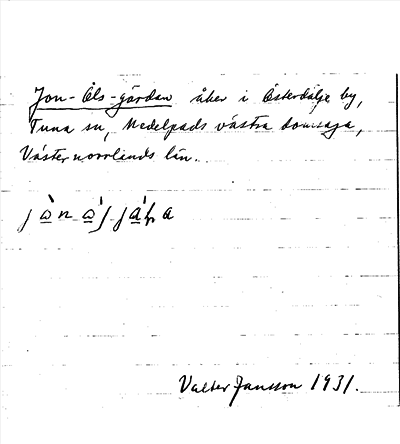 Jon-Ols-gärdan åker i Österdälje by,
Tuna sn, Medelpads västra domsaga,
Västernorrlands län.
Valter Jansson 1931.